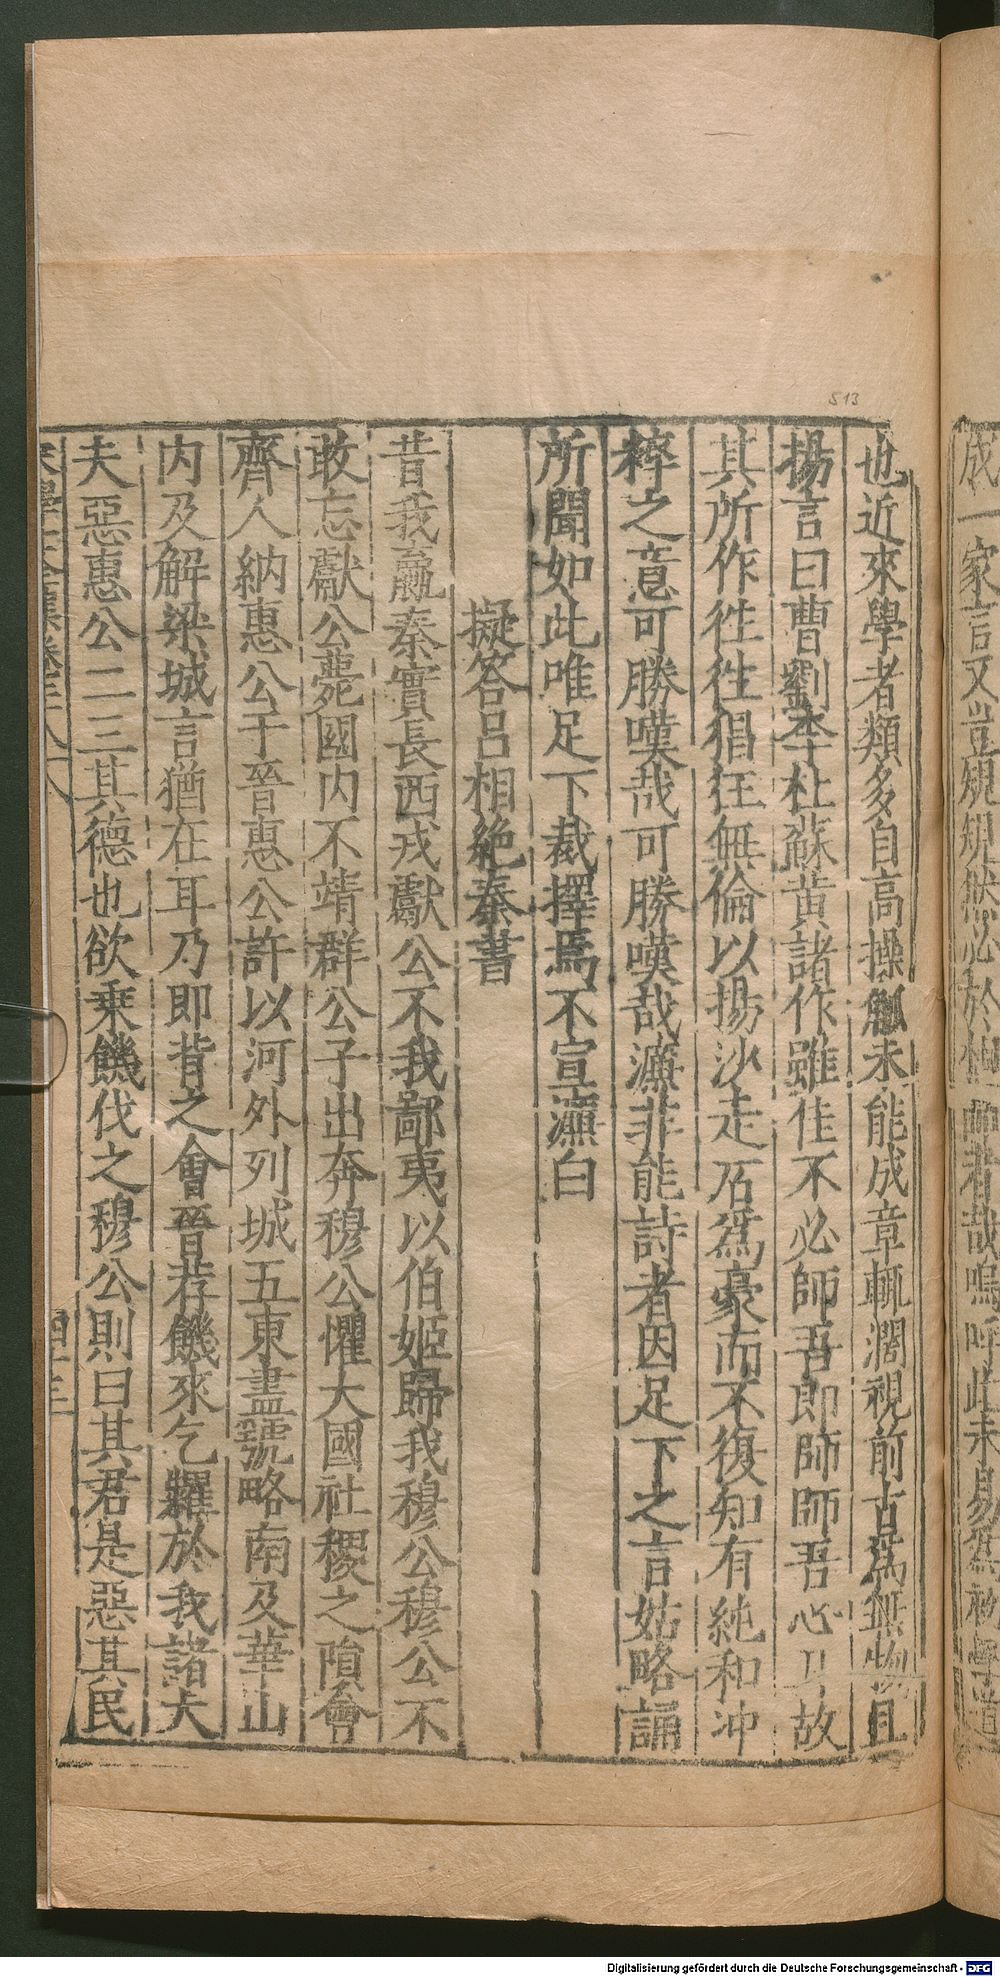 成一家言又豈規規然必於相師者哉嗚呼此未易爲初學道
也近來學者類多自高操觚未能成章輒濶視前古爲無物且
揚言曰曹劉李杜蘇黄諸作雖佳不必師吾即師師吾心耳故
其所作徃徃倡狂無倫以揚沙走石爲豪而不復知有純和冲
粹之意可勝嘆哉可勝嘆哉濂非能詩者因足下之言姑略誦
所聞如此唯足下裁擇焉不宣濂白
擬答吕相絶秦書
昔我嬴秦實長西戎獻公不我鄙夷以伯姬歸我穆公穆公不
敢忘獻公薨國内不靖群公子出奔穆公懼大國社稷之隕會
齊人納惠公于晉惠公許以河外列城五東盡虢略南及華山
内及解梁城言猶在耳乃即背之會晉荐饑來乞糴於我諸大
夫惡惠公二三其德也欲乗饑伐之穆公則曰其君是惡其民
宋學士全集卷三八
四十三
513
Digitalisierung gefördert durch die Deutsche Forschungsgemeinschaft - DFG